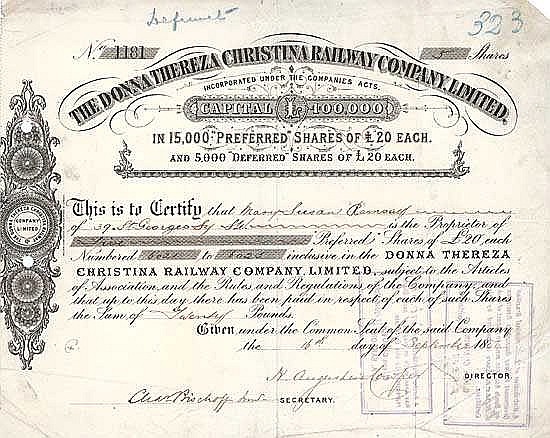 Defunct
323
No 1181 5 Shares
THE DONNA THEREZA CHRISTINA RAILWAY COMPANY, LIMITED.
INCORPORATED UNDER THE COMPANIES ACTS.
CAPITAL £400,000
IN 15,000 PREFERRED SHARES OF £20 EACH.
AND 5,000 DEFERRED SHARES OF £20 EACH.
COMPANY
LIMITED
This is to Certify that Mary Susan Ramsay
of 39 St Georges Sq is the Proprietor of
Five Preferred Shares of £20 each
Numbered to inclusive in the DONNA THEREZA
CHRISTINA RAILWAY COMPANY, LIMITED, subject to the Articles
of Association and the Rules and Regulations of the Company, and
that up to this day there has been paid in respect of each of such Shares
the Sum of Twenty Pounds.
Given under the Common Seal of the said Company
the 16th day of September 188
H. Augustus Cowper DIRECTOR.
Chas Bischoff SECRETARY.